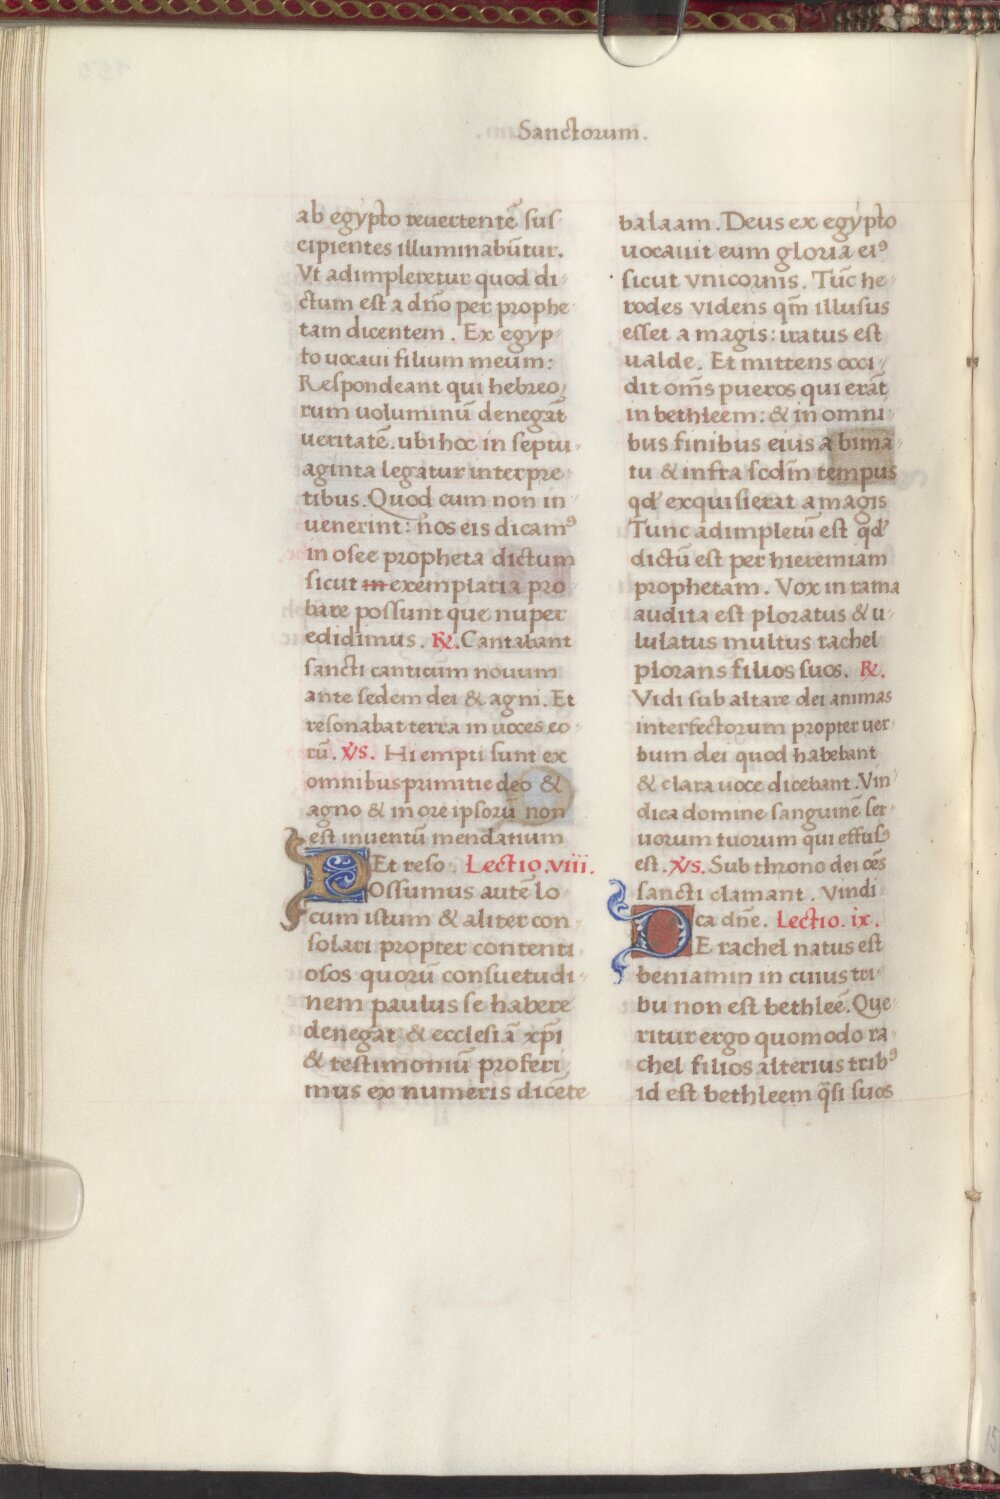 Sanctorum.
ab egypto reuertentē sus
cipientes illuminabūtur.
Vt adimpleretur quod di
ctum est a dn̄o per prophe
tam dicentem. Ex egyp
to uocaui filium meum:
Respondeant qui hebreo
rum uoluminū denegāt
ueritatē. ubi hoc in septu
aginta legatur interpre
tibus. Quod cum non in
uenerint: nos eis dicamꝰ
in osee propheta dictum
sicut in exemplaria pro
bare possunt que nuper
edidimus. ℟. Cantabant
sancti canticum nouum
ante sedem dei & agni. Et
resonabat terra in uoces eo
rū. ℣s. Hi empti sunt ex
omnibus primitie deo &
agno & in ore ipsorū non
est inuentū mendatium
Et reso. Lectio. viii.
POssumus autē lo
cum istum & aliter con
solari propter contenti
osos quorū consuetudi
nem paulus se habere
denegat & ecclesiā xp̄i
& testimoniū proferi
mus ex numeris dicēte
balaam. Deus ex egypto
uocauit eum gloria eiꝰ
sicut vnicornis. Tūc he
rodes videns qm̄ illusus
esset a magis: iratus est
ualde. Et mittens occi
dit om̄s pueros qui erāt
in bethleem: & in omni
bus finibus eius a bima
tu & infra scdm̄ tempus
qd̄ exquisierat a magis
Tunc adimpletū est qd̄
dictū est per hieremiam
prophetam. Vox in rama
audita est ploratus & u
lulatus multus rachel
plorans filios suos. ℟.
Vidi sub altare dei animas
interfectorum propter uer
bum dei quod habebant
& clara uoce dicebant. Vin
dica domine sanguinē ser
uorum tuorum qui effusꝰ
est. ℣s. Sub throno dei oēs
sancti clamant. Vindi
ca dn̄e. Lectio. ix.
DE rachel natus est
beniamin in cuius tri
bu non est bethleē. Que
ritur ergo quomodo ra
chel filios alterius tribꝰ
id est bethleem q̄si suos